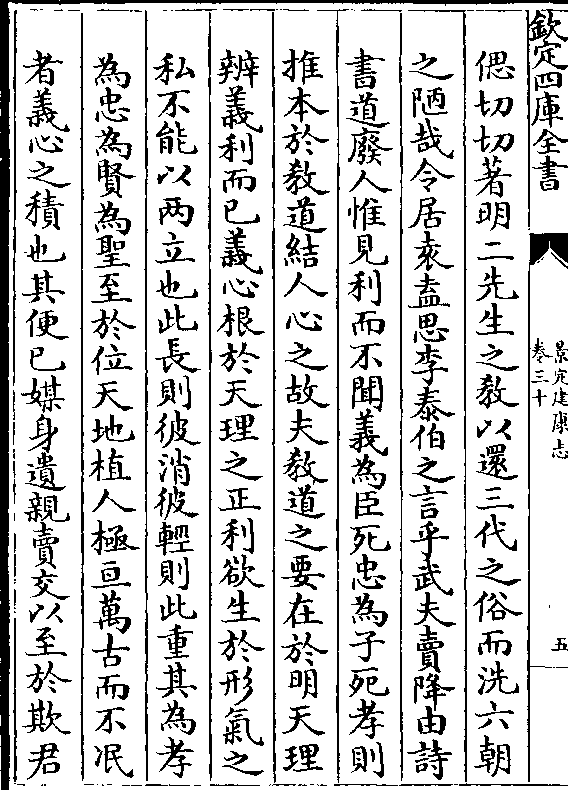 欽定四庫全書
景定建康志
卷三十
五
偲切切著明二先生之教以還三代之俗而洗六朝
之陋哉令居袁盍思李泰伯之言乎武夫賣降由詩
書道廢人惟見利而不聞義為臣死忠為子死孝則
推本於教道結人心之故夫教道之要在於明天理
辨義利而已義心根於天理之正利欲生於形氣之
私不能以两立也此長則彼消彼輕則此重其為孝
為忠為賢為聖至於位天地植人極亘萬古而不泯
者義心之積也其便已媒身遺親賣交以至於欺君